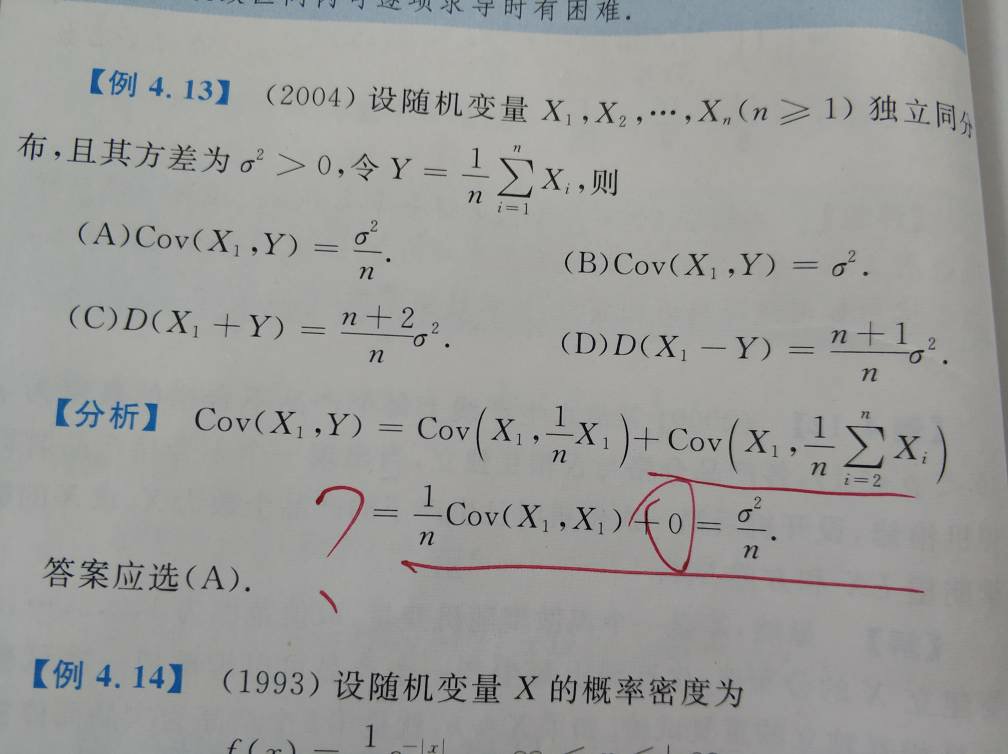 逐项求导时有困难.
【例 4.13】 (2004) 设随机变量 X₁,X₂,⋯,Xₙ(n ⩾ 1) 独立同分
布,且其方差为 σ² > 0,令 Y = \frac{1}{n}\sum_{i=1}^{n} Xᵢ,则
(A)Cov(X₁,Y) = \frac{σ²}{n}. (B)Cov(X₁,Y) = σ².
(C)D(X₁ + Y) = \frac{n+2}{n}σ². (D)D(X₁ − Y) = \frac{n+1}{n}σ².
【分析】 Cov(X₁,Y) = Cov(X₁,\frac{1}{n}X₁) + Cov(X₁,\frac{1}{n}\sum_{i=2}^{n} Xᵢ)
? = \frac{1}{n}Cov(X₁,X₁) + 0 = \frac{σ²}{n}.
答案应选(A).
【例 4.14】 (1993) 设随机变量 X 的概率密度为